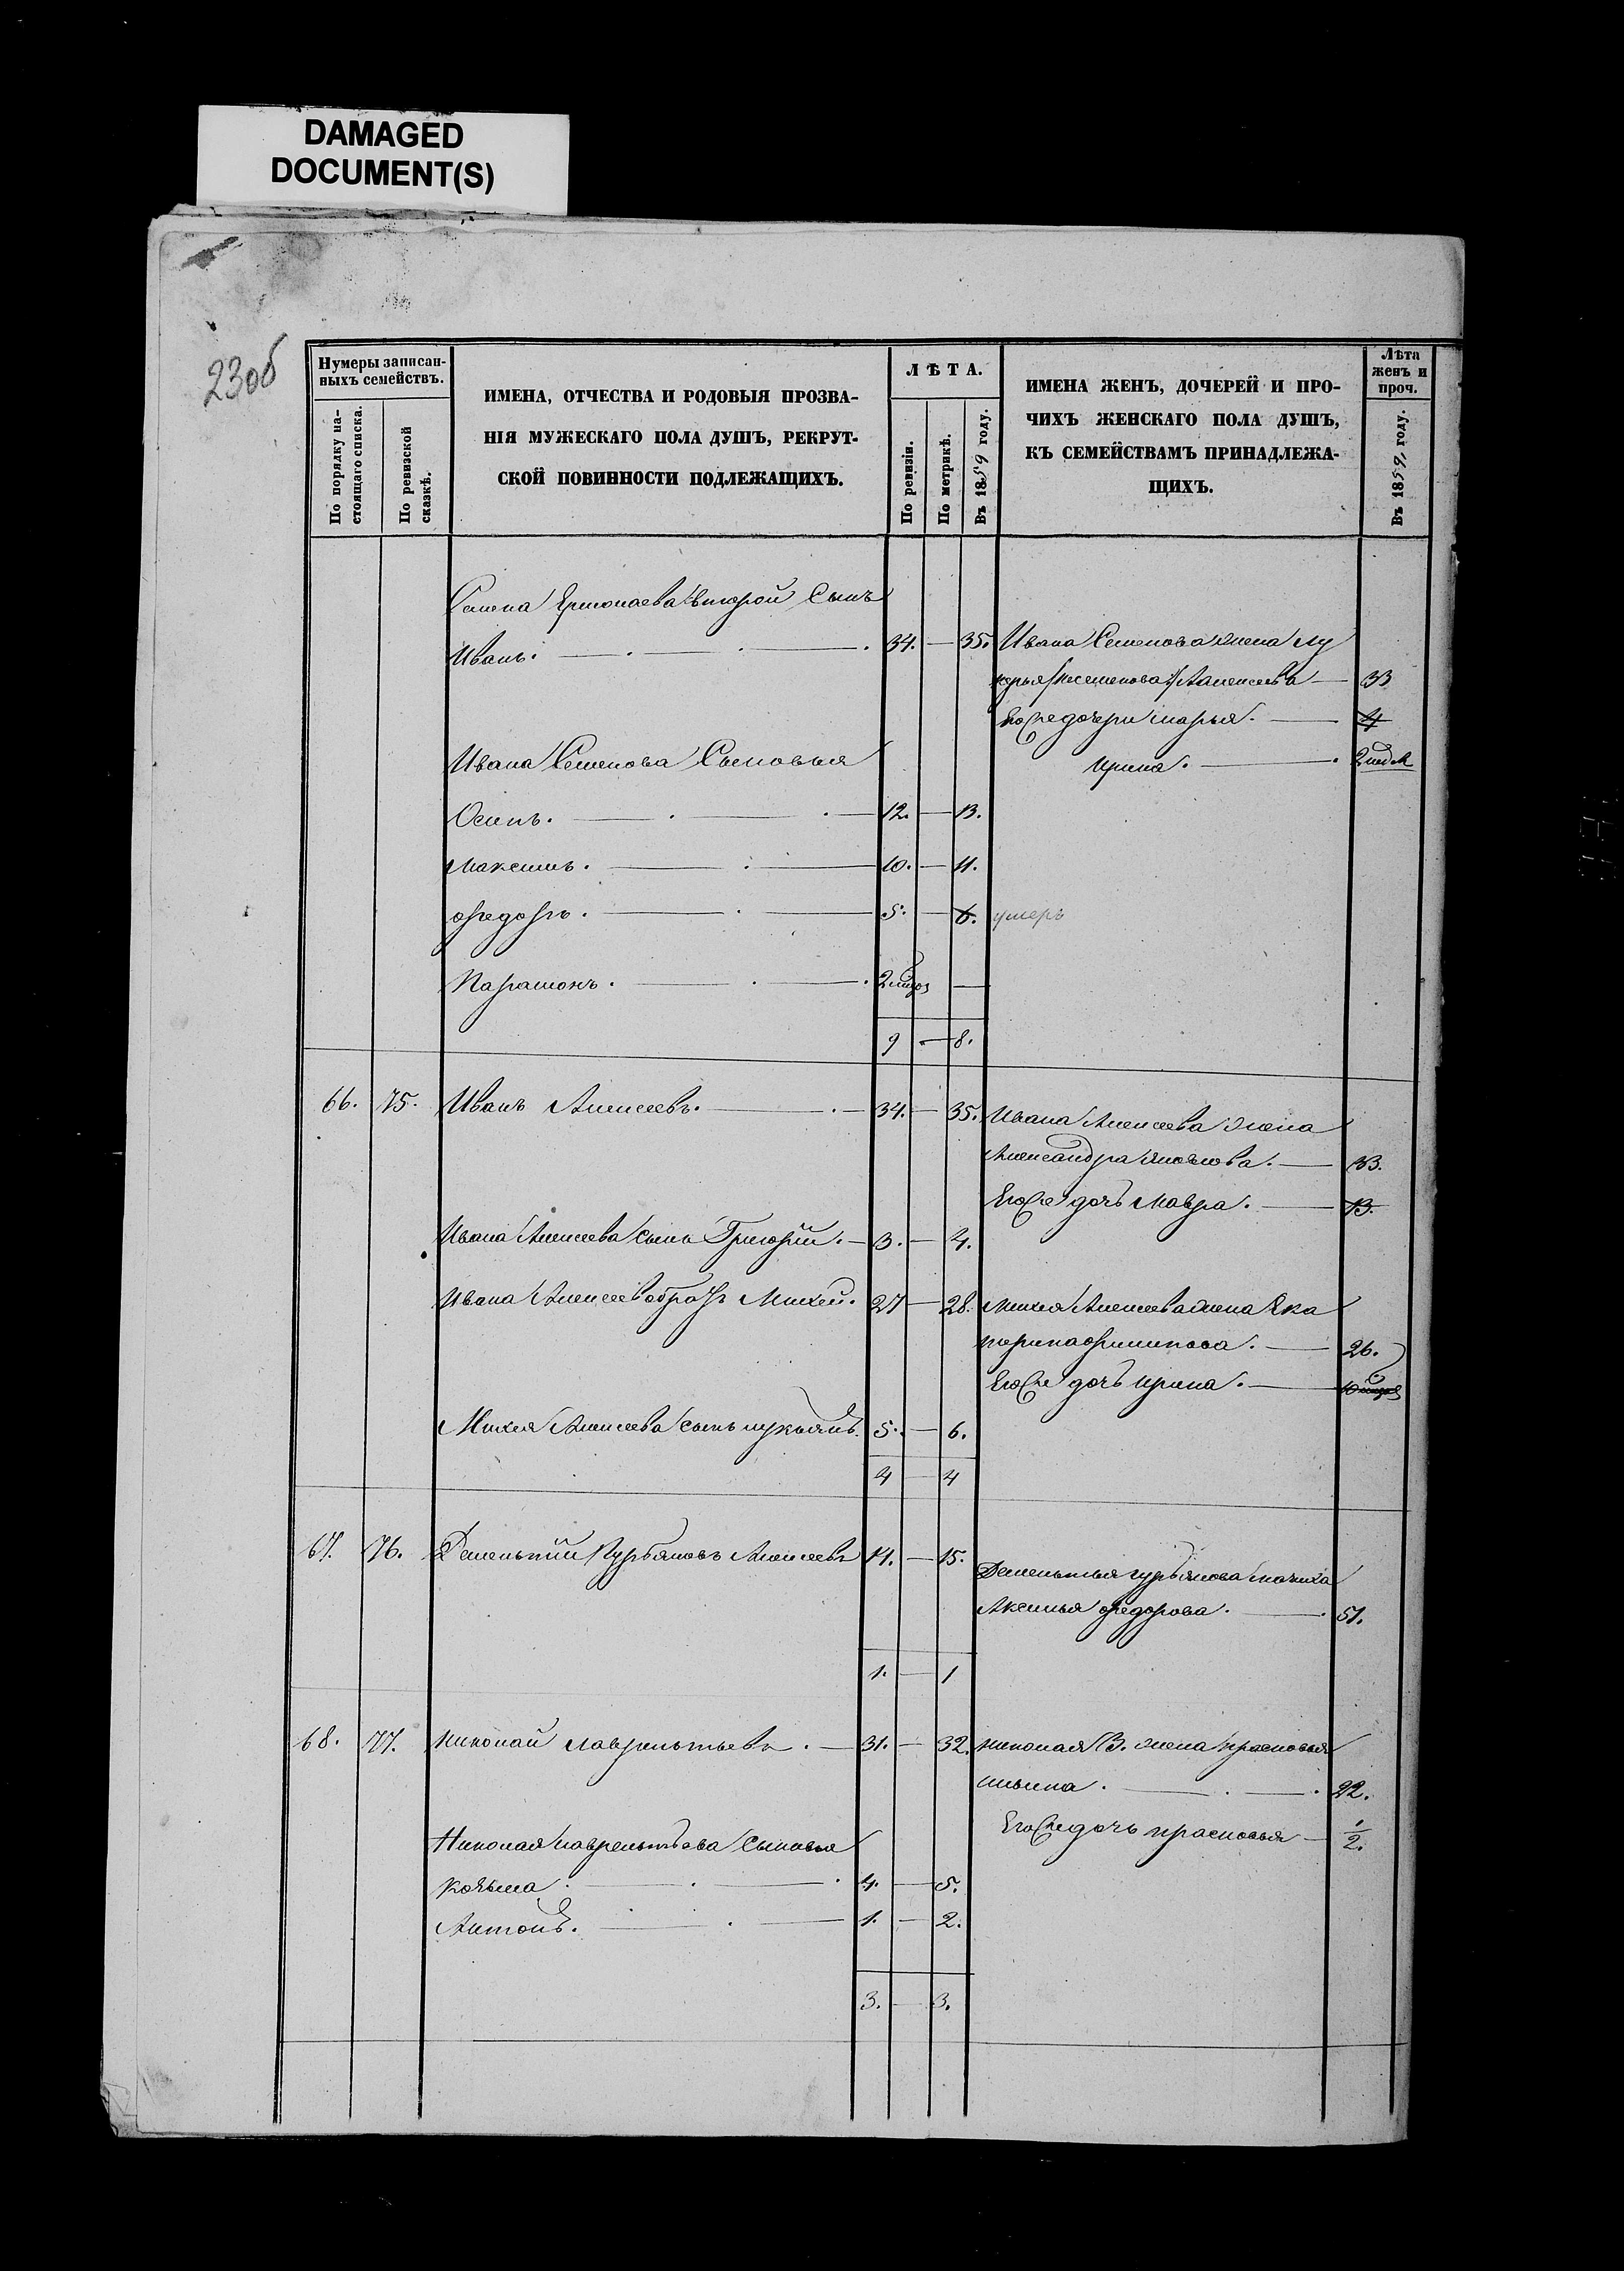 DAMAGED
DOCUMENT(S)
23об
Нумеры записан-
ныхъ семействъ.
По порядку на-
стоящаго списка.
По ревизской
сказкѣ.
ИМЕНА, ОТЧЕСТВА И РОДОВЫЯ ПРОЗВА-
НІЯ МУЖЕСКАГО ПОЛА ДУШЪ, РЕКРУТ-
СКОЙ ПОВИННОСТИ ПОДЛЕЖАЩИХЪ.
ЛѢТА.
По ревизіи.
По метрикѣ.
Въ 1859 году.
ИМЕНА ЖЕНЪ, ДОЧЕРЕЙ И ПРО-
ЧИХЪ ЖЕНСКАГО ПОЛА ДУШЪ,
КЪ СЕМЕЙСТВАМЪ ПРИНАДЛЕЖА-
ЩИХЪ.
Лѣта
женъ и
проч.
Въ 1859, году.
Семена Ермолаева второй Сынъ
Иванъ. 34. — 35. Ивана Семенова жена Лу
керья Алексеева — 33
Егоже дочери Марья. — 4
Ивана Семенова Сыновья
Ирина. — 2 нед.
Осипъ. — 12. — 13.
Максимъ. — 10. — 11.
Федоръ. — 5. — 6. умеръ
Парамонъ. —
9 — 8.
66. 75. Иванъ Алексеевъ. — 34. — 35. Ивана Алексеева жена
Александра Яковлева. — 33.
Егоже дочь Мавра. — 13.
Ивана Алексеева сынъ Григорій. — 3. — 4.
Ивана Алексеева братъ Михей. 27 — 28. Михея Алексеева жена Ека
терина Филипова. — 26.
Егоже дочь Ирина. —
Михея Алексеева сынъ Лукьянъ. 5. — 6.
4 — 4
67. 76. Дементій Гурьяновъ Алексеевъ 14. — 15.
Дементья Гурьянова мачиха
Аксинья Федорова. — 51.
1. — 1
68. 77. Николай Лаврентьевъ. — 31. — 32. Николая Л. жена Прасковья
Ильина. — 22.
Егоже дочь Прасковья — 1/2.
Николая Лаврентьева сыновья
Козьма. — 4. — 5.
Антонъ. — 1. — 2.
3. — 3.